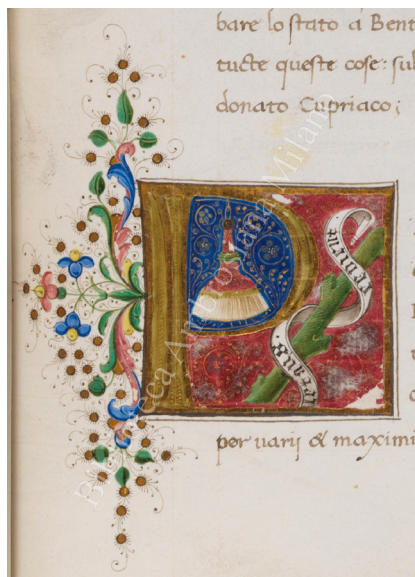 bare lo stato à Bent
tucte queste cose: sub
donato Cupriaco;
P
per uarij & maximi
Biblioteca Ambrosiana Milano